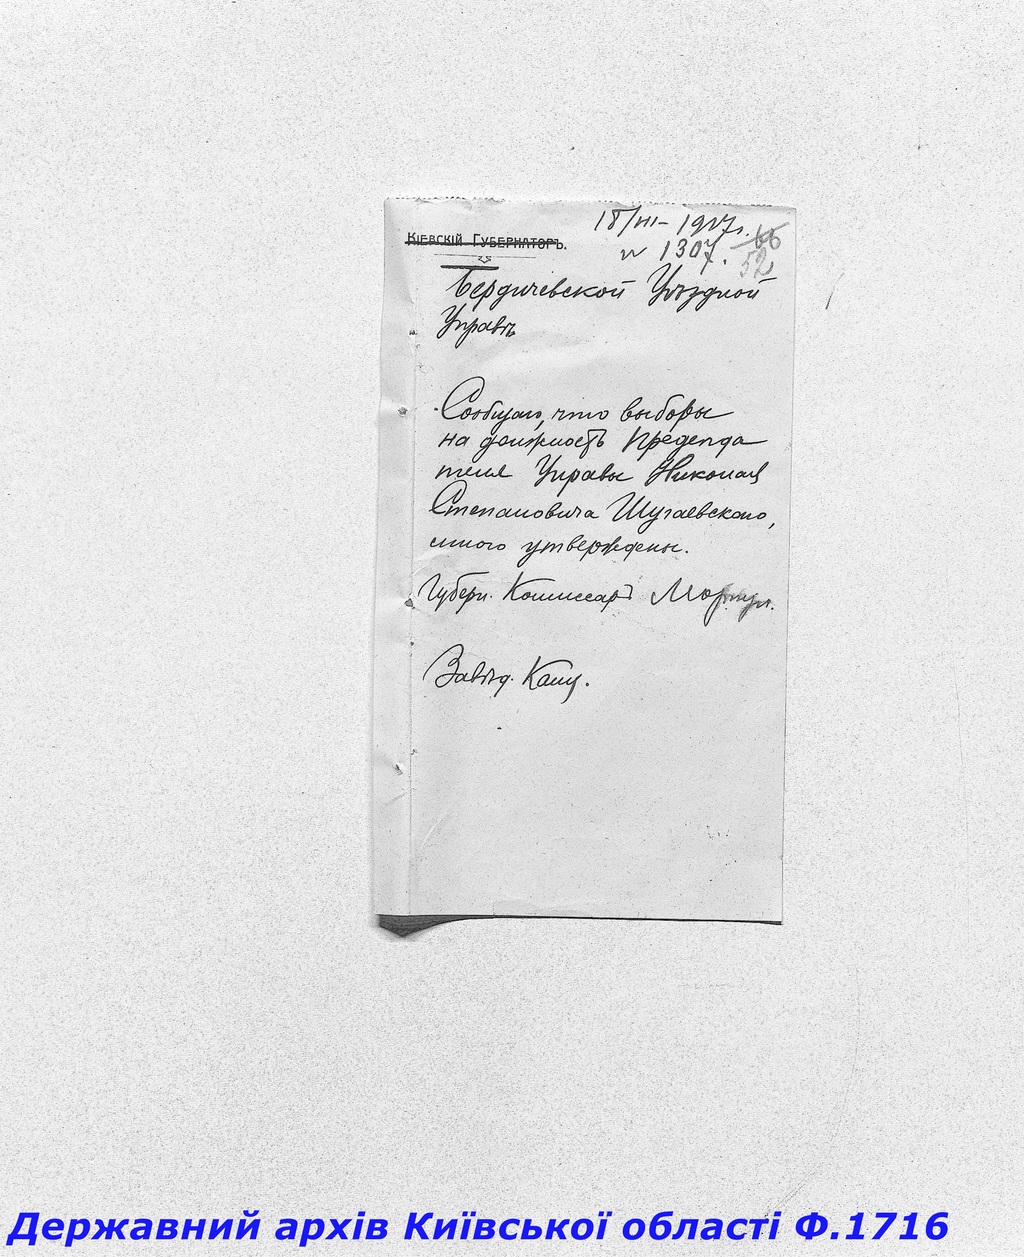 18/III – 1917 г.
КІЕВСКІЙ ГУБЕРНАТОРЪ.
№ 1307.
66
52
Бердичевской Уѣздной
Управѣ
Сообщаю, что выборы
на должность Председа
теля Управы Николая
Степановича Шугаевского,
мною утверждены.
Губерн. Комиссаръ
Завѣд. Канц.
Державний архів Київської області Ф.1716